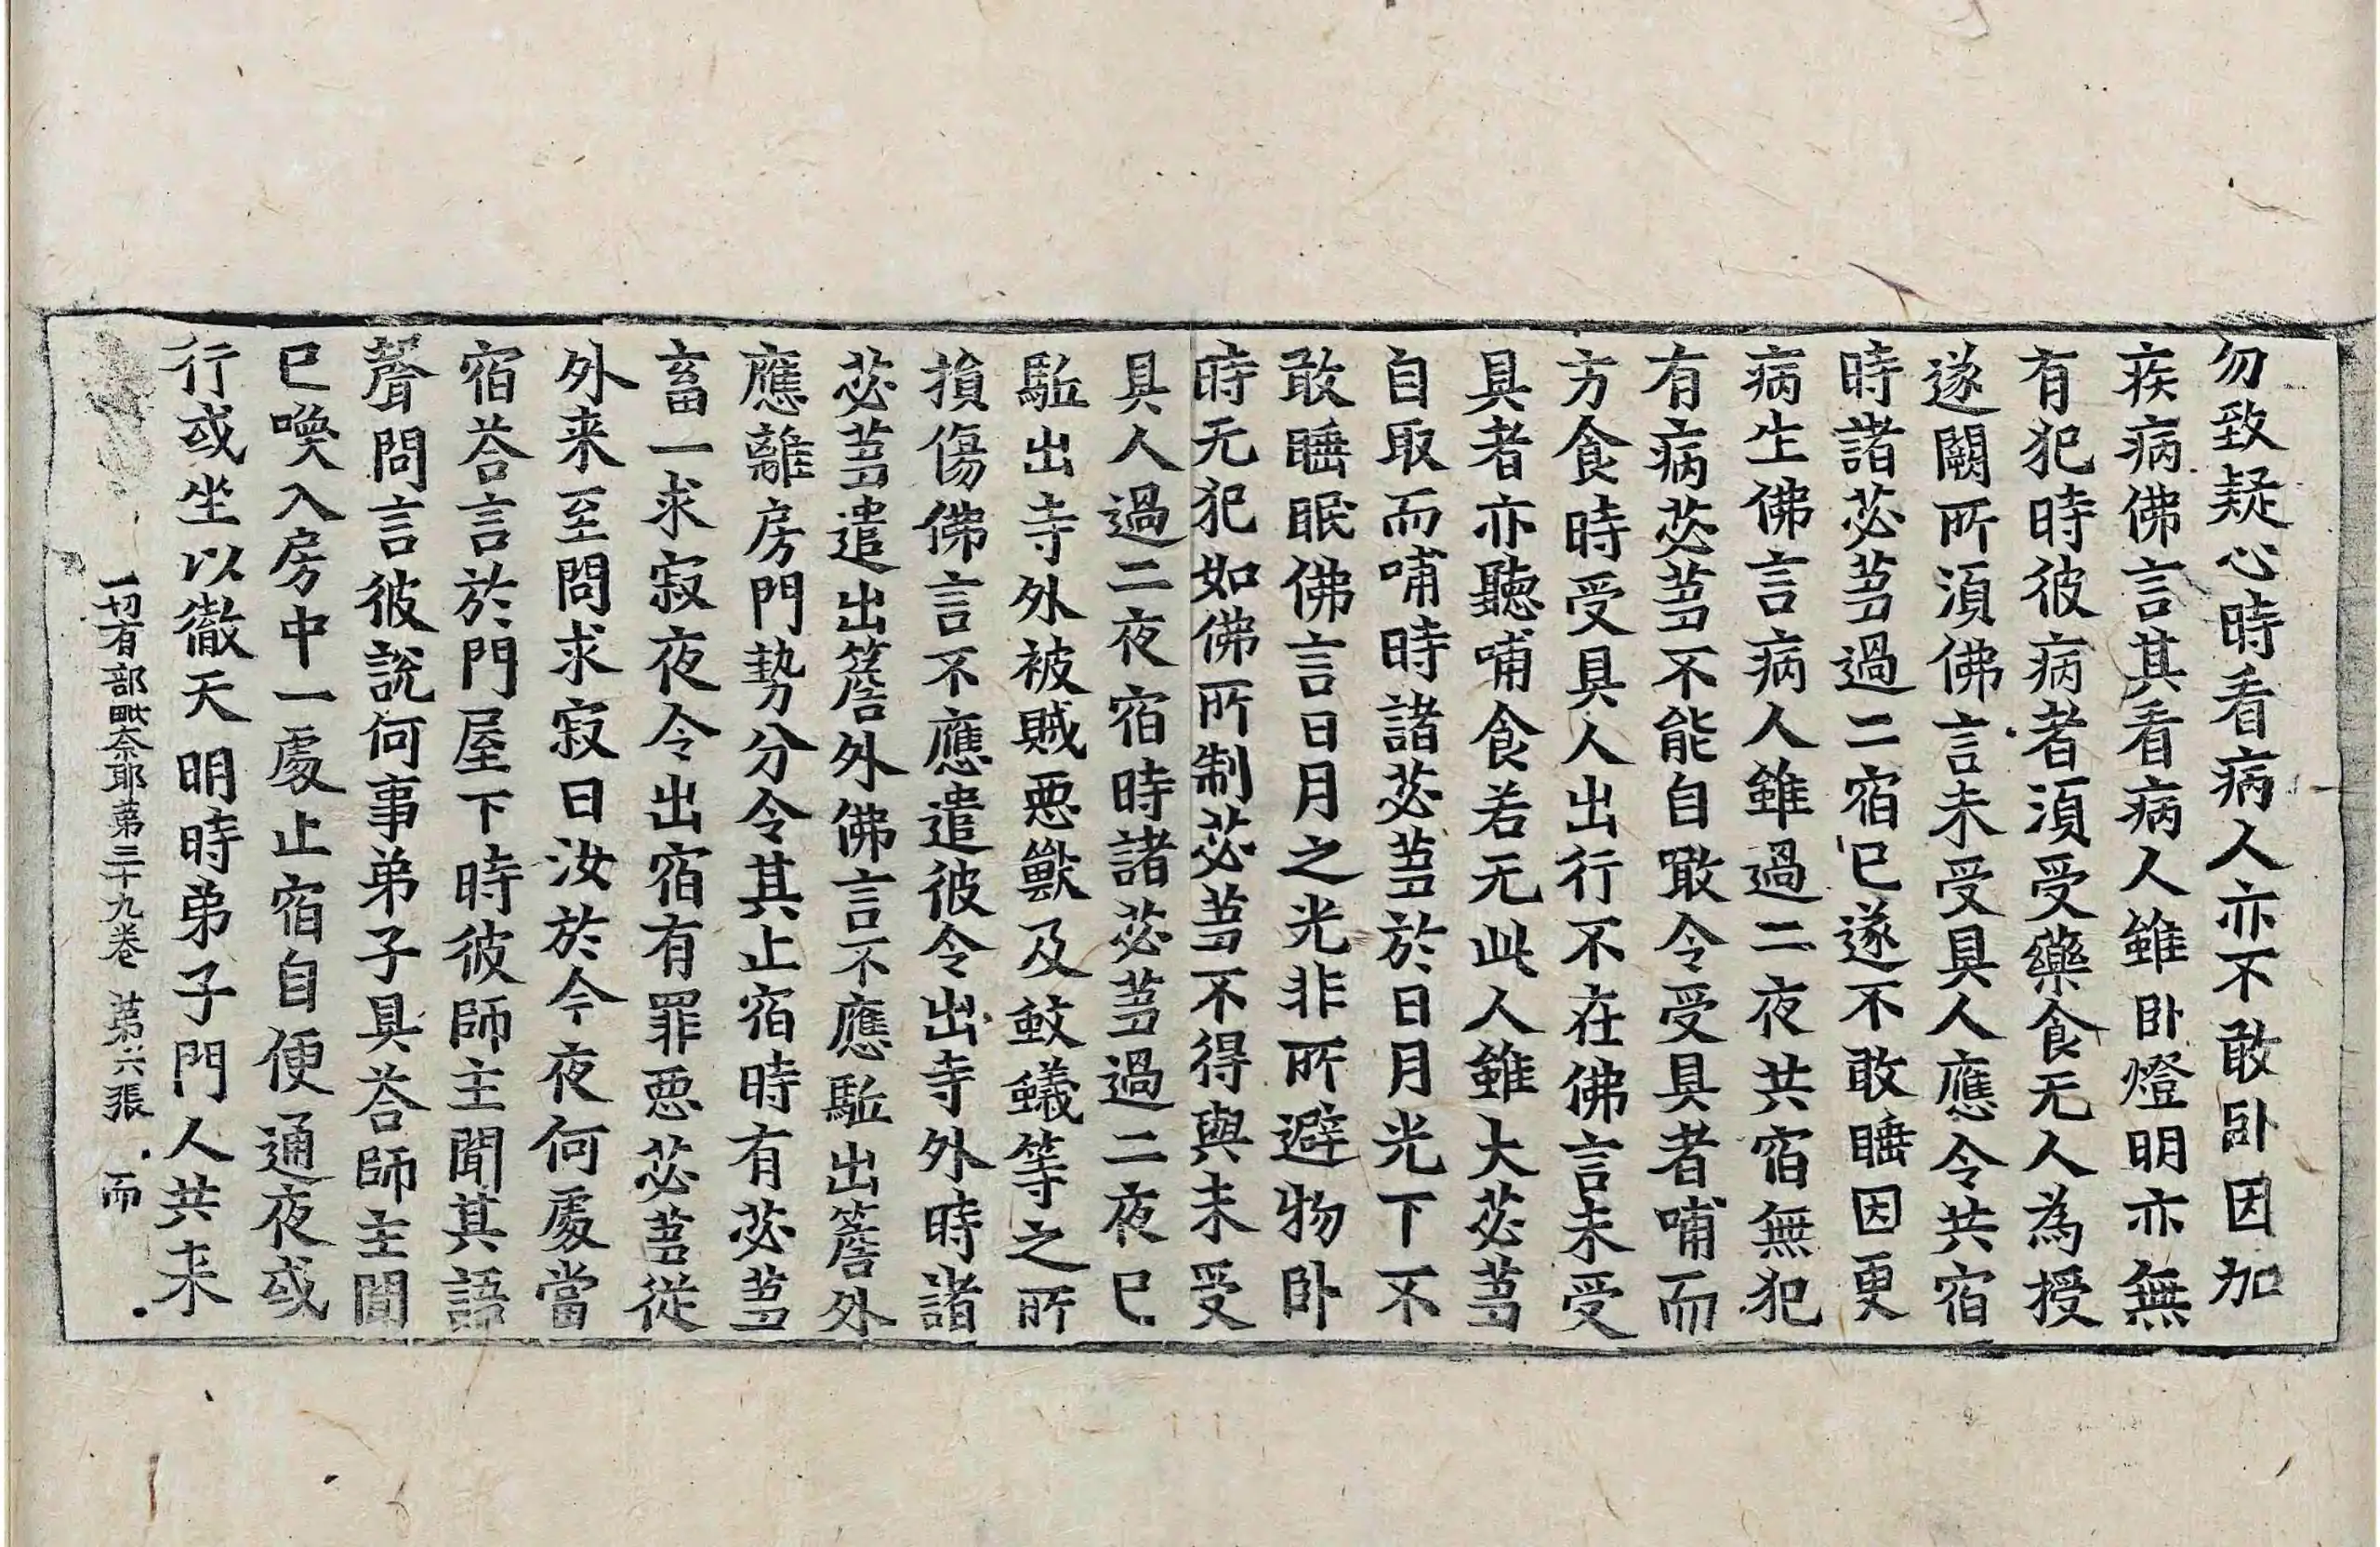 勿致疑心時看病人亦不敢卧因加
疾病佛言其看病人雖卧燈明亦無
有犯時彼病者湏受藥食无人為授
遂闕所湏佛言未受具人應令共宿
時諸苾蒭過二宿已遂不敢睡因更
病生佛言病人雖過二夜共宿無犯
有病苾蒭不能自噉令受具者哺而
方食時受具人出行不在佛言未受
具者亦聽哺食若无此人雖大苾蒭
自取而哺時諸苾蒭於日月光下不
敢睡眠佛言日月之光非所避物卧
時无犯如佛所制苾蒭不得與未受
具人過二夜宿時諸苾蒭過二夜已
駈出寺外被賊惡獸及蚊蟻等之所
損傷佛言不應遣彼令出寺外時諸
苾蒭遣出簷外佛言不應駈出簷外
應離房門勢分令其止宿時有苾蒭
畜一求寂夜令出宿有罪惡苾蒭從
外来至問求寂曰汝於今夜何處當
宿荅言於門屋下時彼師主聞其語
聲問言彼說何事弟子具荅師主聞
已喚入房中一處止宿自便通夜或
行或坐以徹天明時弟子門人共来
一切有部毗奈耶第三十九卷 第六張 而